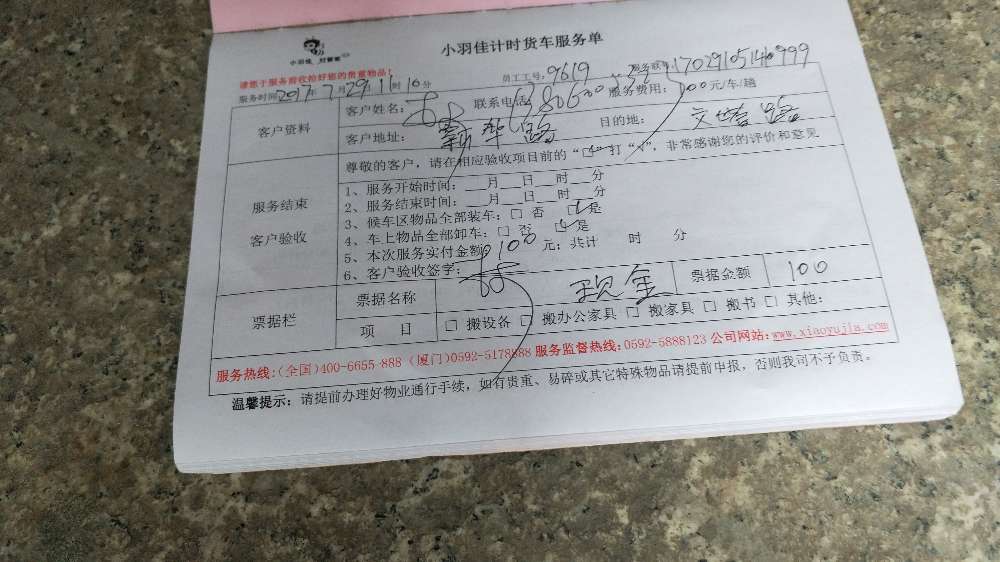 小羽佳 好管家
小羽佳计时货车服务单
请您于服务前收拾好您的贵重物品!
服务时间2017年7月29日11时10分 员工工号:9619
客户资料 客户姓名: 联系电话 服务费用:100元/车/趟
客户地址: 路 目的地: 文塔路
尊敬的客户,请在相应验收项目前的“□”打“√”,非常感谢您的评价和意见
服务结束
客户验收
1、服务开始时间:__月__日__时__分
2、服务结束时间:__月__日__时__分
3、候车区物品全部装车:□ 否 □是
4、车上物品全部卸车:□ 否 □是
5、本次服务实付金额:100元;共计 时 分
6、客户验收签字:
票据栏 票据名称 现金 票据金额 100
项 目 □ 搬设备 □ 搬办公家具 □ 搬家具 □ 搬书 □ 其他:
服务热线:(全国)400-6655-888 (厦门)0592-5178888 服务监督热线:0592-5888123 公司网站:www.xiaoyujia.com
温馨提示:请提前办理好物业通行手续,如有贵重、易碎或其它特殊物品请提前申报,否则我司不予负责。